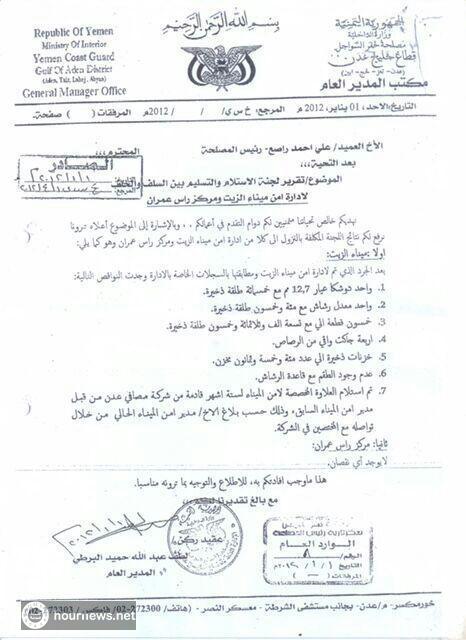 Republic Of Yemen
Ministry Of Interior
Yemen Coast Guard
Gulf Of Aden District
(Aden, Taiz, Lahej, Abyan)
General Manager Office
بسم الله الرحمن الرحيم
الجمهورية اليمنية
وزارة الداخلية
مصلحة خفر السواحل
قطاع خليج عدن
(عدن - تعز - لحج - ابين)
مكتب المدير العام
التاريخ، الاحد، 01 يناير، 2012م المرجع، خ س ي/ / / /2012م المرفقات ( ) صفحة.
الأخ العميد/ علي احمد راصع- رئيس المصلحة المحترم,,,
بعد التحية,,,
الصادر
الموضوع/تقرير لجنة الاستلام والتسليم بين السلف والخلف
لادارة امن ميناء الزيت ومركز راس عمران
نهديكم خالص تحياتنا متمنيين لكم دوام التقدم في أعمالكم .. وبالإشارة إلى الموضوع أعلاه
نرفع لكم نتائج اللجنة المكلفة بالنزول الى كلا من ادارة امن ميناء الزيت ومركز راس عمران وهو كما يلي:
اولا :ميناء الزيت:
بعد الجرد الذي تم لادارة امن ميناء الزيت ومطابقتها بالسجلات الخاصة بالادارة وجدت النواقص التالية:
1. واحد دوشكا عيار 12,7 مم مع خمسمائة طلقة ذخيرة.
2. واحد معدل رشاش مع مئة وخمسون طلقة ذخيرة.
3. خمسون قطعة الي مع تسعة الف وثلاثمائة وخمسون طلقة ذخيرة.
4. اربعة جاكت واقي من الرصاص.
5. خزنات ذخيرة الي عدد مئة وخمسة وثمانون مخزن.
6. عدم وجود الطقم مع قاعدة الرشاش.
7. تم استلام العلاوة المخصصة لامن الميناء لستة اشهر قادمة من شركة مصافي عدن من قبل
مدير امن الميناء السابق، وذلك حسب بلاغ الاخ/ مدير امن الميناء الحالي من خلال
تواصله مع المختصين في الشركة.
ثانيا: مركز راس عمران:
لايوجد أي نقصان.
هذا ماوجب افادتكم به، للاطلاع والتوجيه بما ترونه مناسبا.
مع بالغ تقديرنا لكم,,,
عقيد ركن/
لطف عبد الله حميد البرطي
المدير العام
الوارد العام
الرقم/ ٨
التاريخ ١/١/٢٠١٢م
المرفقات
خورمكسر- م/عدن- بجانب مستشفى الشرطة - معسكر النصر - (هاتف/ 272300-02/ فاكس/ 272303-02)
hournews.net